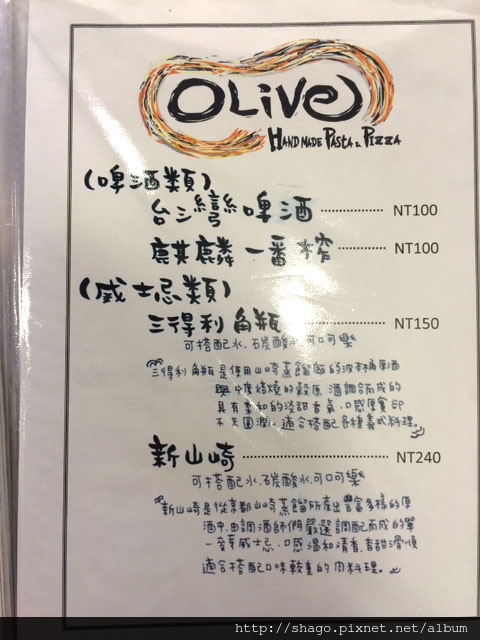 OLive
HAND MADE PASTA & PIZZA
(啤酒類)
台灣啤酒 NT100
麒麟一番搾 NT100
(威士忌類)
三得利角瓶 NT150
可搭配水、碳酸水、可口可樂
三得利角瓶是使用山崎蒸餾廠的波本桶原酒
與中度焙燒的穀原酒調合而成的
具有柔和的淡甜香氣、口感厚實卻
不失圓潤。適合搭配各種義式料理。
新山崎 NT240
可搭配水、碳酸水、可口可樂
新山崎是從京都山崎蒸餾所產出豐富多樣的原
酒中、由調酒師們嚴選調配而成的單
一麥芽威士忌、口感溫和清香、香甜滑順
適合搭配口味較重的肉料理。
http://shago.pixnet.net/album